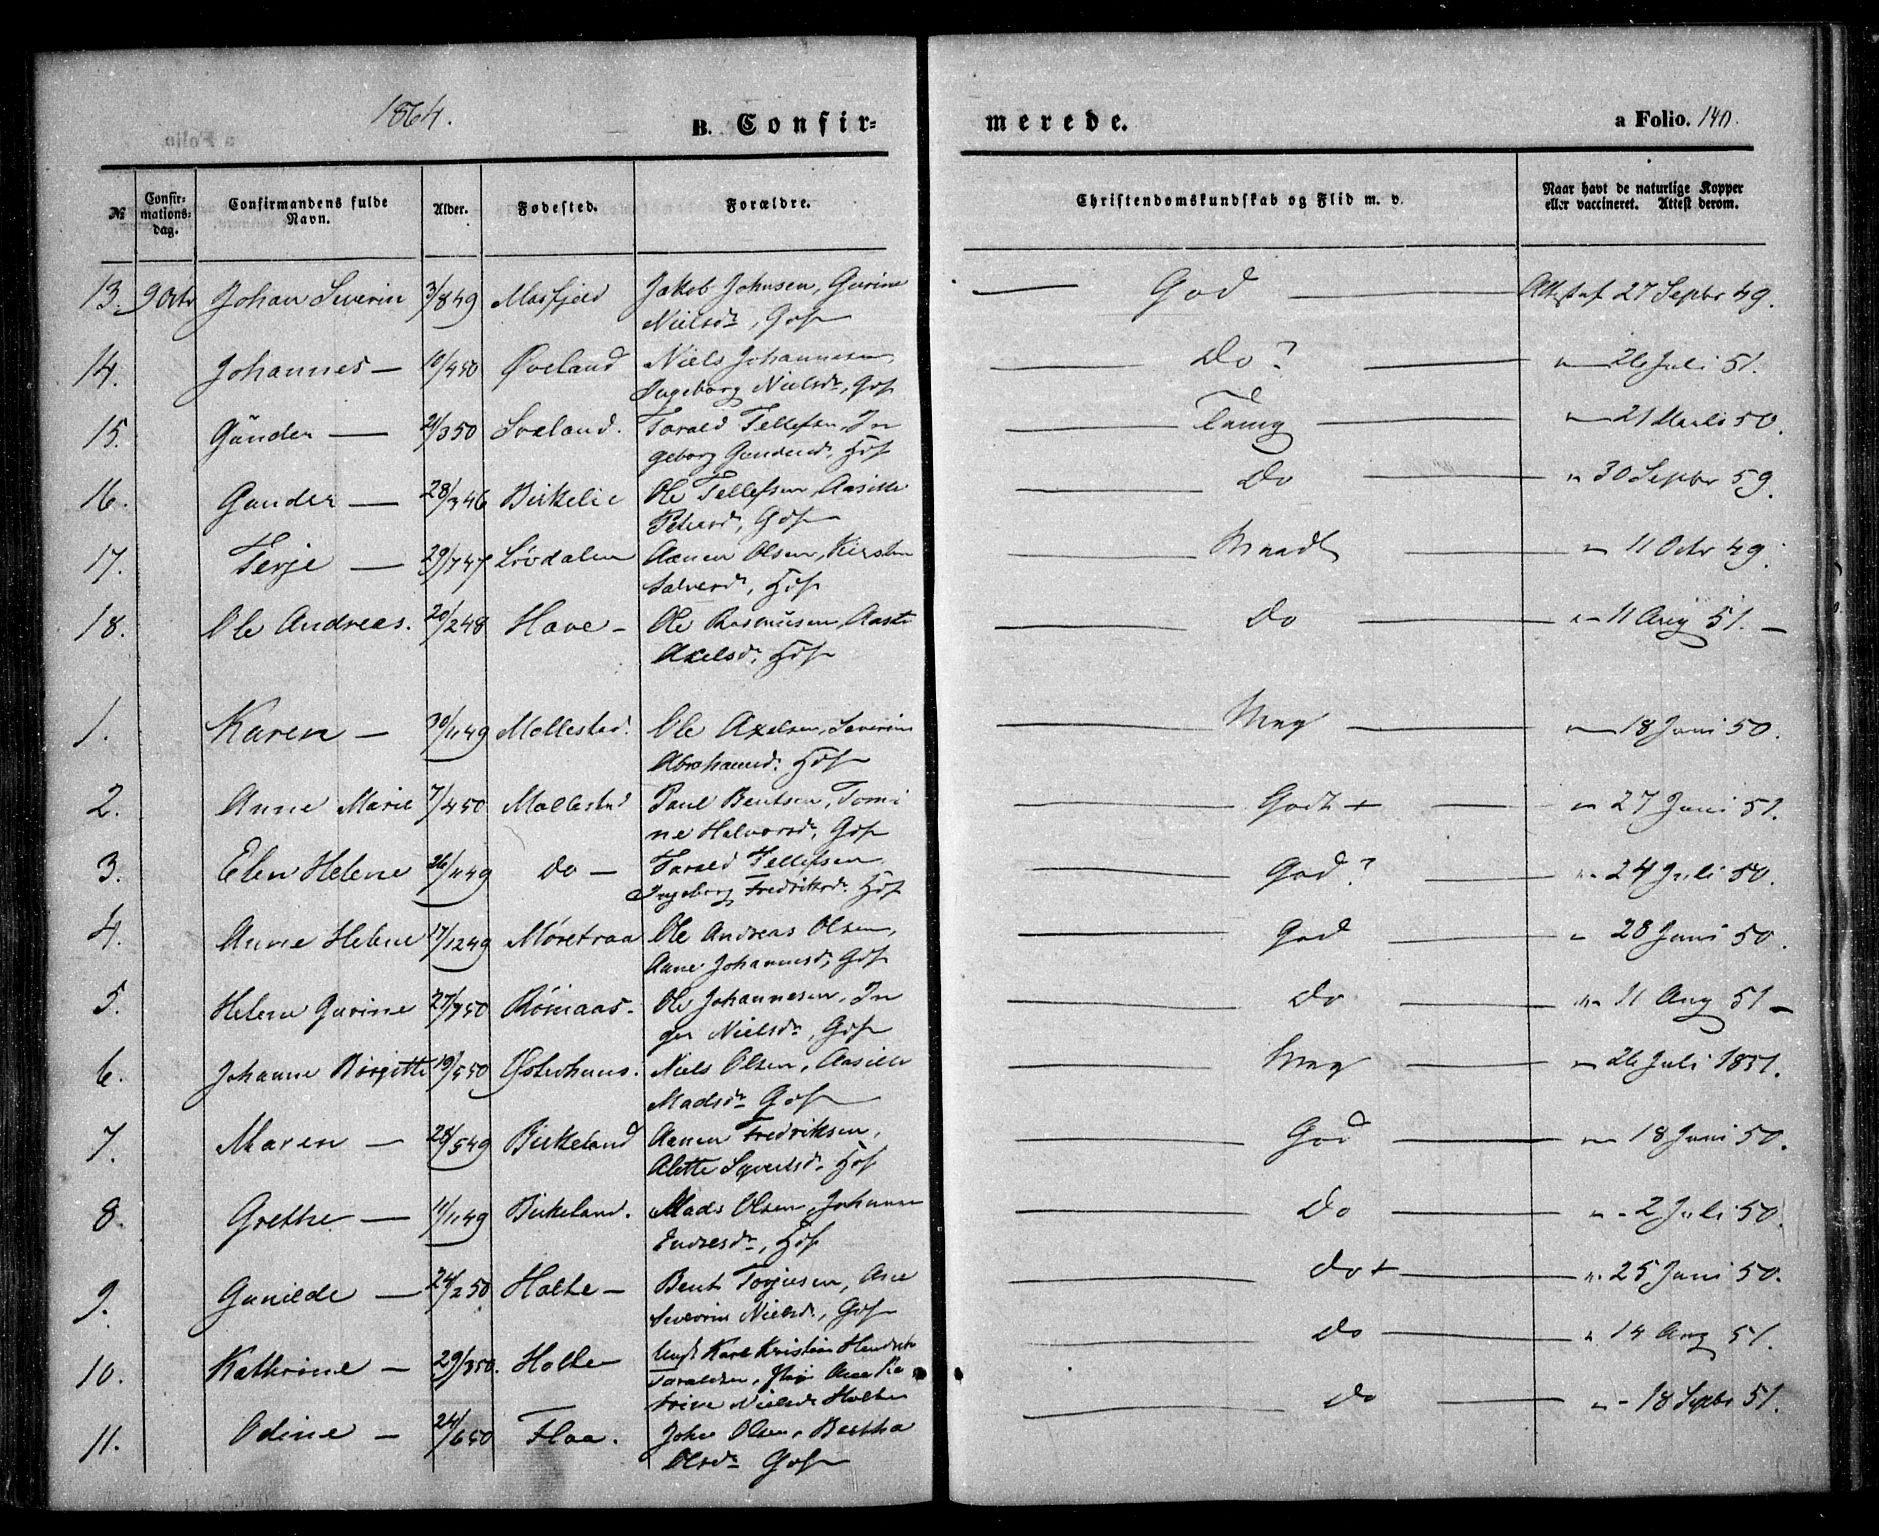 1864.
B. Confir=
merede.
a Folio. 140.
№
Confir-
mations-
dag.
Confirmandens fulde
Navn.
Alder.
Fødested.
Forældre.
Christendomskundskab og Flid m. v.
Naar havt de naturlige Kopper
eller vaccineret. Attest derom.
13. 9 Octr Johan Severin 3/8 49 Mosfjeld Jakob Johnsen, Gurine
Nielsdr, Gdf God Att.st af 27 Septbr 49.
14. Johannes — 10/4 50 Øveland Niels Johannesen
Ingeborg Nielsdr, Gdf Do? " 26 Juli 51.
15. Gunder — 21/3 50 Sveland. Tarald Tellefsen, In
geborg Gundersd. Hdf Temg " 21 Marts 50.
16. Gunder — 28/3 46 Birkelie Ole Tellefsen, Aasille
Petersd, Gdf Do " 30 Septbr 59.
17. Terje — 29/7 47 Løvdalen Aanen Olsen, Kirsten
Salvesd, Hdf Maadl " 11 Octr 49.
18. Ole Andreas. 20/2 48 Have — Ole Rasmusen, Aaste
Axelsd, Hdf Do " 11 Aug 51. —
1. Karen — 30/11 49 Mollestad. Ole Axelsen, Severine
Abrahamsd. Hdf Meg " 18 Juni 50.
2. Anne Marie 7/4 50 Mollestad Paul Bentsen, Tomi
ne Halvorsd, Gdf Godt + " 27 Juni 51.
3. Elen Helene 26/11 49 do — Tarald Tellefsen
Ingeborg Fredriksd. Hdf God? " 24 Juli 50.
4. Anne Helene 17/12 49 Møretraa Ole Andreas Olsen,
Aane Johannesd, Gdf God " 28 Juni 50.
5. Helene Gurine 27/7 50 Rømaas. Ole Johannesen, In
ger Nielsdr, Gdf Do " 11 Aug 51 —
6. Johanne Børgitte 19/5 50 Østerhuus. Niels Olsen, Aasille
Madsdr Gdf Meg " 26 Juli 1851.
7. Maren — 28/5 49 Birkeland Aanen Fredriksen,
Alette Syvertsd. Hdf God " 18 Juni 50.
8. Grethe — 11/11 49 Birkeland. Mads Olsen, Johanne
Endresdr, Hdf Do " 2 Juli 50.
9. Gunilde — 24/2 50 Holte — Bent Torjusen, Ane
Severine Nielsd, Gdf do + " 25 Juni 50.
10. Kathrine — 29/3 50. Holte Ungk Karl Kristian Hendrik
Taraldsen, Pige Ane Ka
trine Nielsd Holte do " 14 Aug 51.
11. Odine — 24/6 50 Flaa. John Olsen, Bertha
Olsdr Gdf do " 18 Septbr 51.